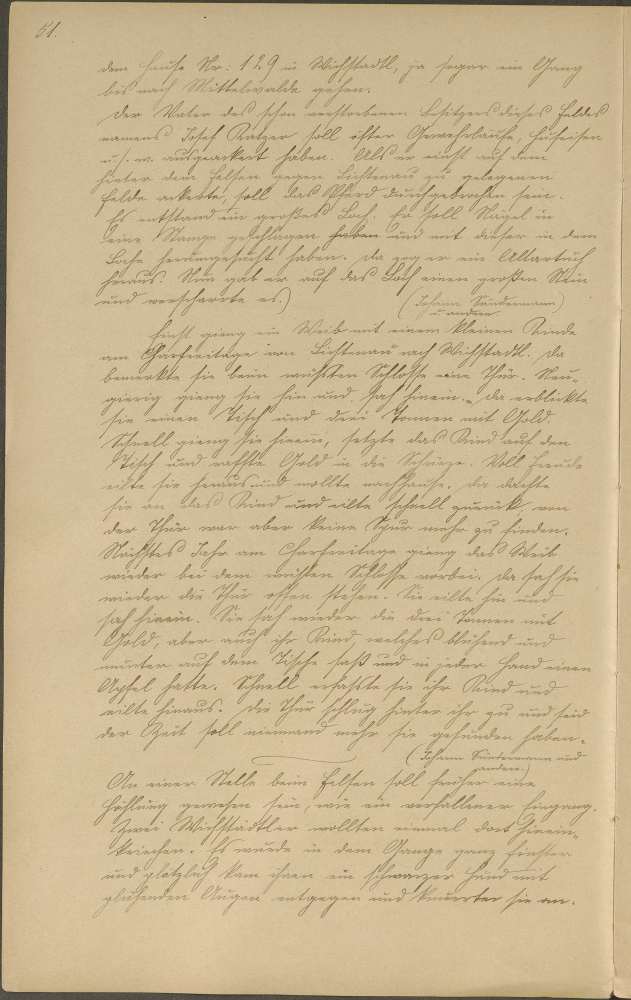 51.
dem Hause Nr: 129 in Wichstadtl, ja sogar ein Gang
bis nach Mittelwalde gehen.
Der Vater des schon verstorbenen Besitzers dieses Feldes
namens Josef Katzer soll öfter Gewehrläufe, Hufeisen
u. s. w. ausgeackert haben. Als er einst auf dem
hinter dem Felsen gegen Lichtenau zu gelegenen
Felde ackerte, soll das Pferd durchgebrochen sein.
Es entstand ein großes Loch. Er soll Nägel in
eine Stange geschlagen haben und mit dieser in dem
Loche herumgesucht haben. Da zog er ein Altartuch
heraus. Nun gab er auf das Loch einen großen Stein
und verscharrte es.) (Johann Sündermann)
u. andern.
Einst gieng ein Weib mit einem kleinen Kinde
am Charfreitage von Lichtenau nach Wichstadtl. Da
bemerkte sie beim wüsten Schlosse eine Thür. Neu-
gierig gieng sie hin und sah hinein. Da erblickte
sie einen Tisch und drei Tonnen mit Gold.
Schnell gieng sie hinein, setzte das Kind auf den
Tisch und raffte Gold in die Schürze. Voll Freude
eilte sie heraus und wollte nachhause. Da dachte
sie an das Kind und eilte schnell zurück, von
der Thür war aber keine Spur mehr zu finden.
Nächstes Jahr am Charfreitage gieng das Weib
wieder bei dem wüsten Schlosse vorbei. Da sah sie
wieder die Thür offen stehen. Sie eilte hin und
sah hinein. Sie sah wieder die drei Tonnen mit
Gold, aber auch ihr Kind welches blühend und
munter auf dem Tische saß und in jeder Hand einen
Apfel hatte. Schnell erfasste sie ihr Kind und
eilte hinaus. Die Thür schlug hinter ihr zu und seid
der Zeit soll niemand mehr sie gefunden haben.
(Johann Sündermann und
andere.)
An einer Stelle beim Felsen soll früher eine
Höhlung gewesen sein, wie ein verfallener Eingang.
Zwei Wichstadtler wollten einmal dort hinein-
kriechen. Es wurde in dem Gange ganz finster
und plötzlich kam ihnen ein schwarzer Hund mit
glühenden Augen entgegen und knurrte sie an.